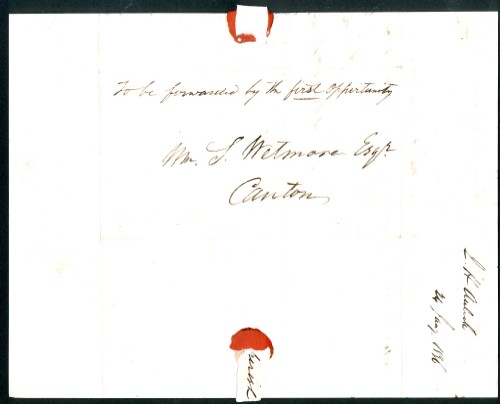 To be forwarded by the first opportunity
Wm. S. Wetmore Esqr.
Canton
24 Jany 1836